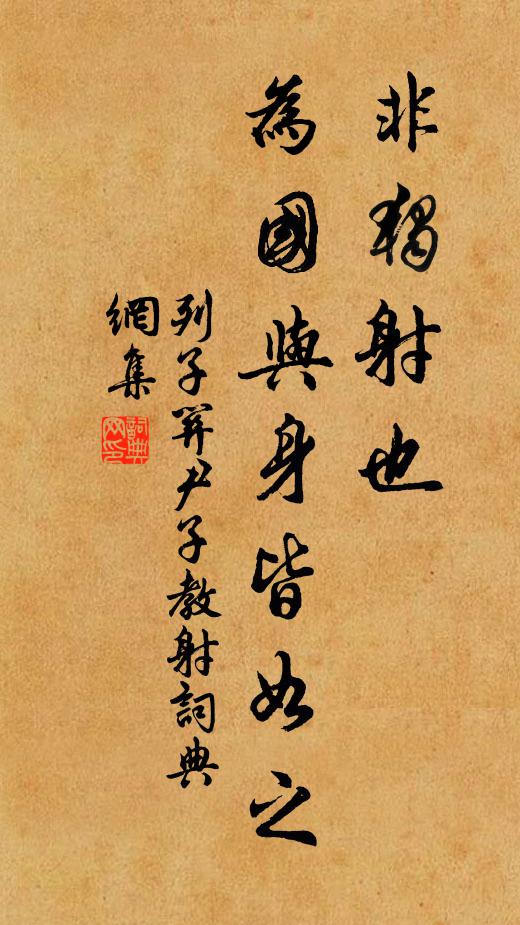 非獨射也
為國與身皆如之
列子關尹子教射詞典
網集
詞典網印